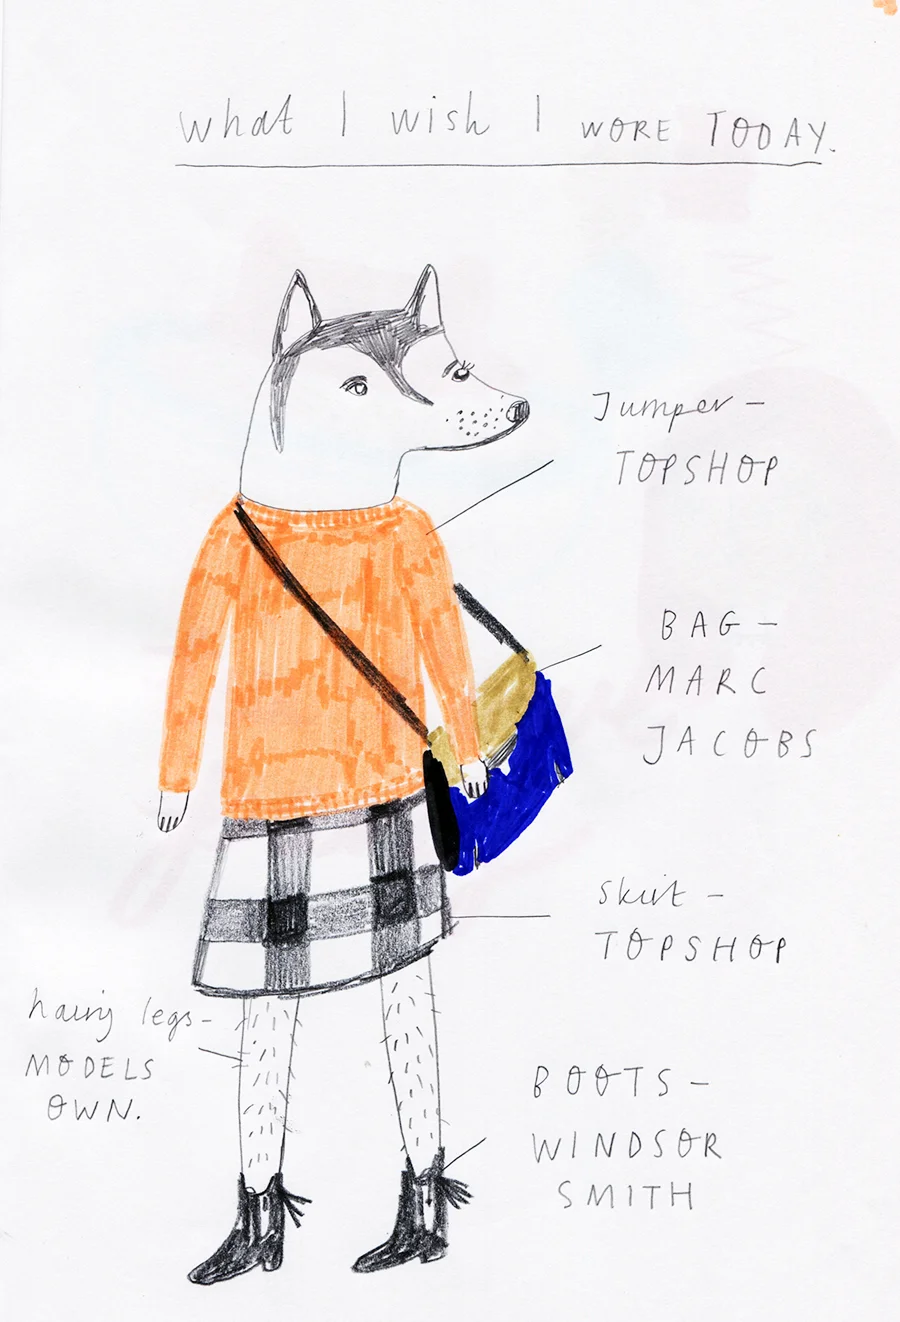 what I wish I WORE TODAY.
Jumper -
TOPSHOP
BAG -
MARC
JACOBS
Skirt -
TOPSHOP
hairy legs -
MODELS
OWN.
BOOTS -
WINDSOR
SMITH